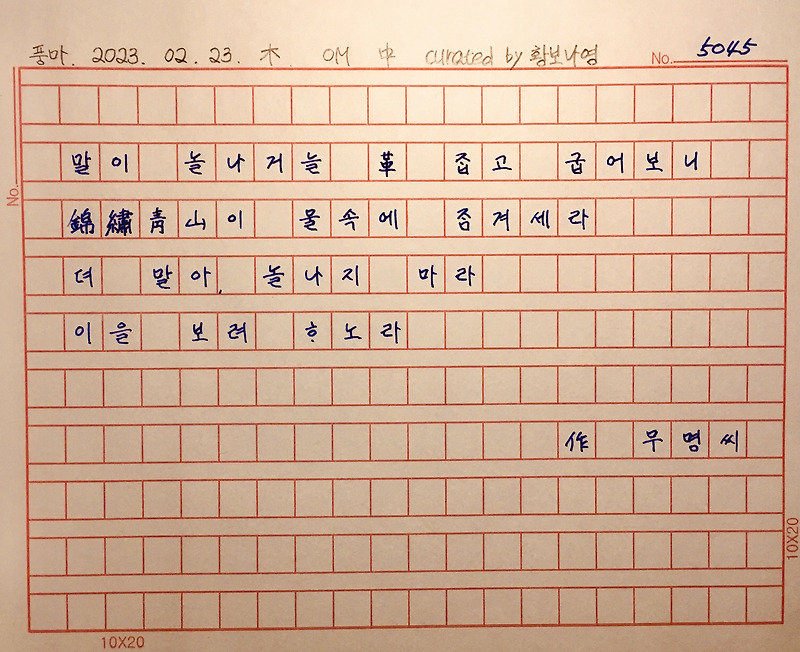 풍마. 2023. 02. 23. 木. OM 中 curated by 황보나영 No. 5045
No.
말이 놀나거늘 革 잡고 굽어보니
錦繡靑山이 물속에 좀겨세라
뎌 말아, 놀나지 마라
이을 보려 ᄒᆞ노라
作 무명씨
10X20
10X20